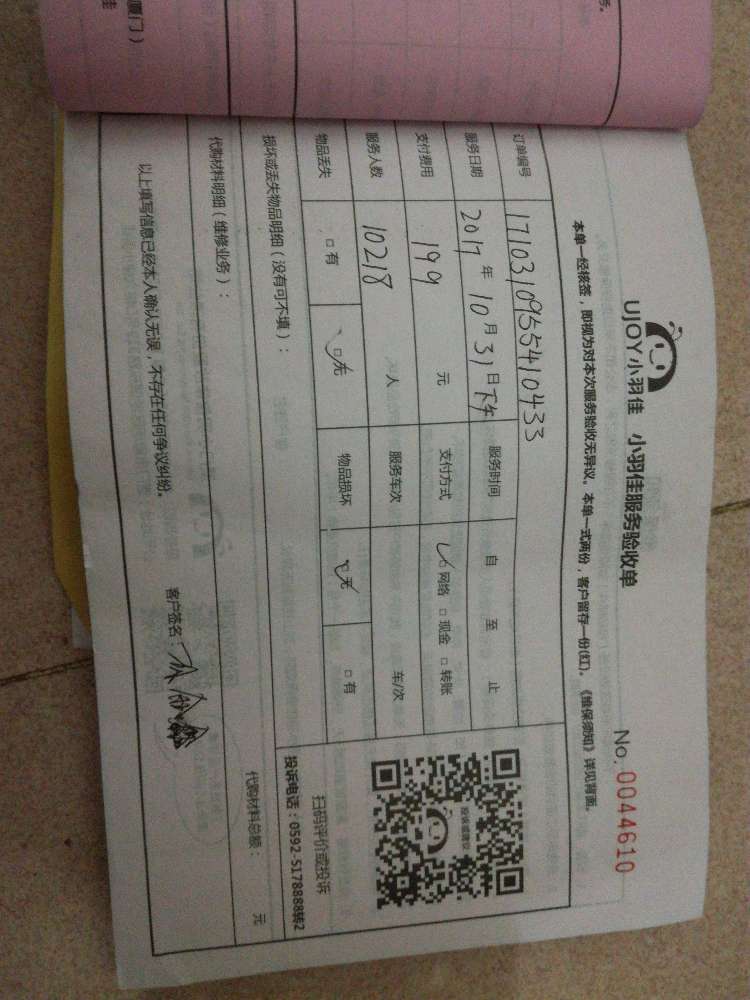 UJOY小羽佳 小羽佳服务验收单
No. 0044610
本单一经核签，即视为对本次服务验收无异议。本单一式两份，客户留存一份(红)。《维保须知》详见背面。
订单编号 1710310955410433
服务日期 2017年10月31日下午 服务时间 自 至 止
支付费用 199 元 支付方式 ☑网络 □现金 □转账
服务人数 10218 人 服务车次 车/次
物品丢失 □有 ☑无 物品损坏 ☑无 □有
投诉或建议
扫码评价或投诉
投诉电话：0592-5178888转2
损坏或丢失物品明细（没有可不填）：
代购材料明细（维修业务）： 代购材料总额： 元
以上填写信息已经本人确认无误，不存在任何争议纠纷。 客户签名：
厦门）